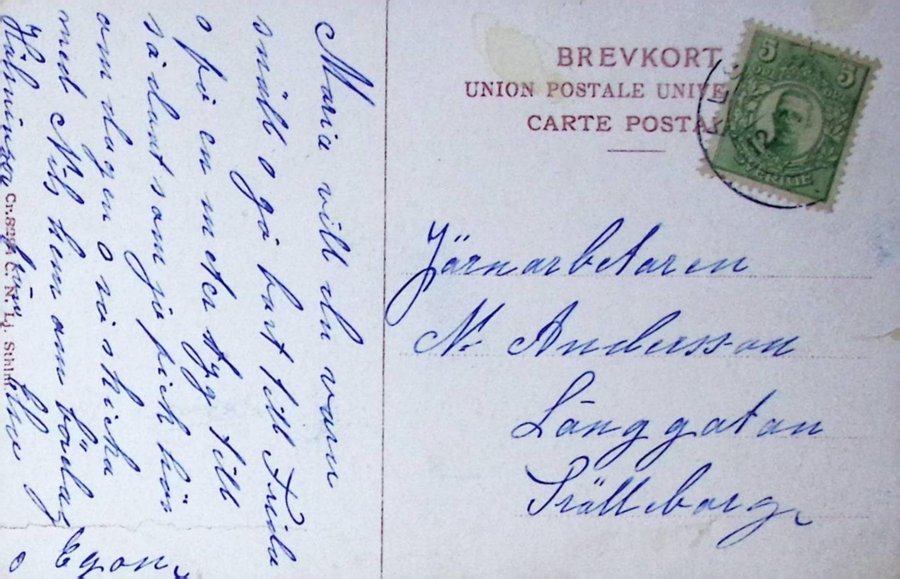 BREVKORT
UNION POSTALE UNIVE
CARTE POSTA
5 5
Järnarbetaren
N. Andersson
Långgatan
Trälleborg
Maria vill du vara
snäll o gå bort till Frida
o få en meter tyg till
sådant som jo fick här
om dagen o så skicka
med Nils hem om lördag
Hälsningar
o Egon
C. N. Lj. Sthlm.